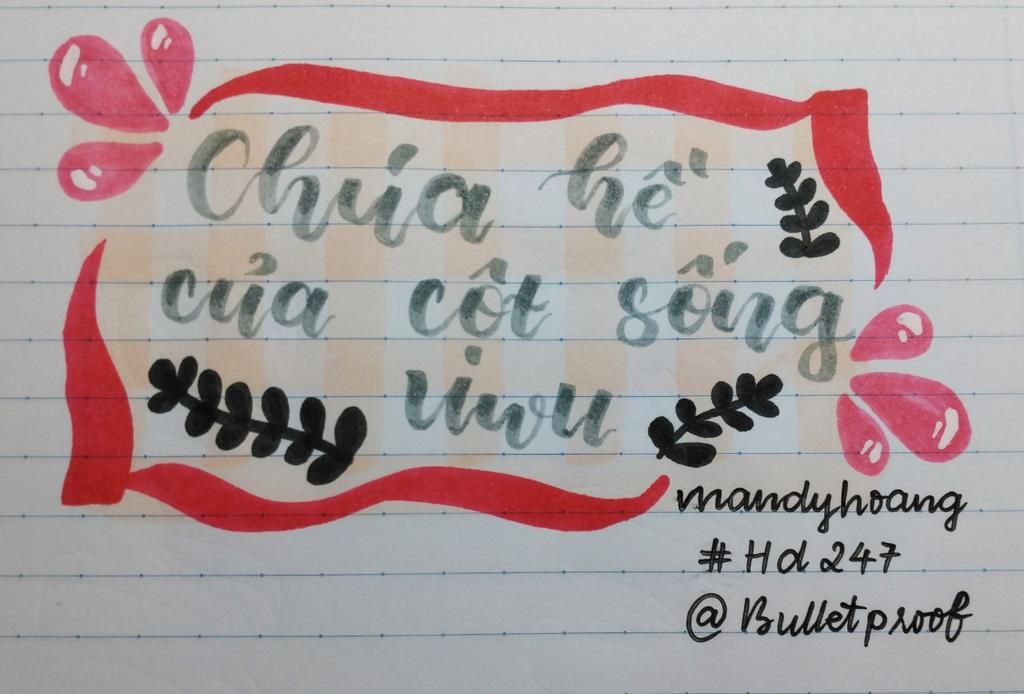 Chúa hề
của cột sống
uwu
mandyhoang
#Hd247
@Bulletproof